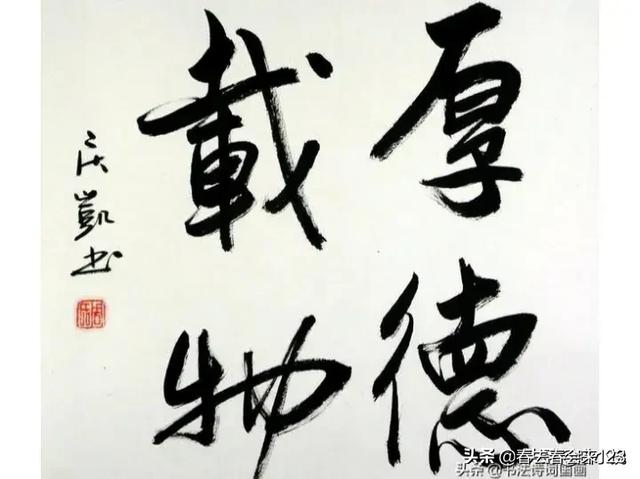 厚德
載物
凱书
头条 @春去春会来123
头条 @书法诗词国画